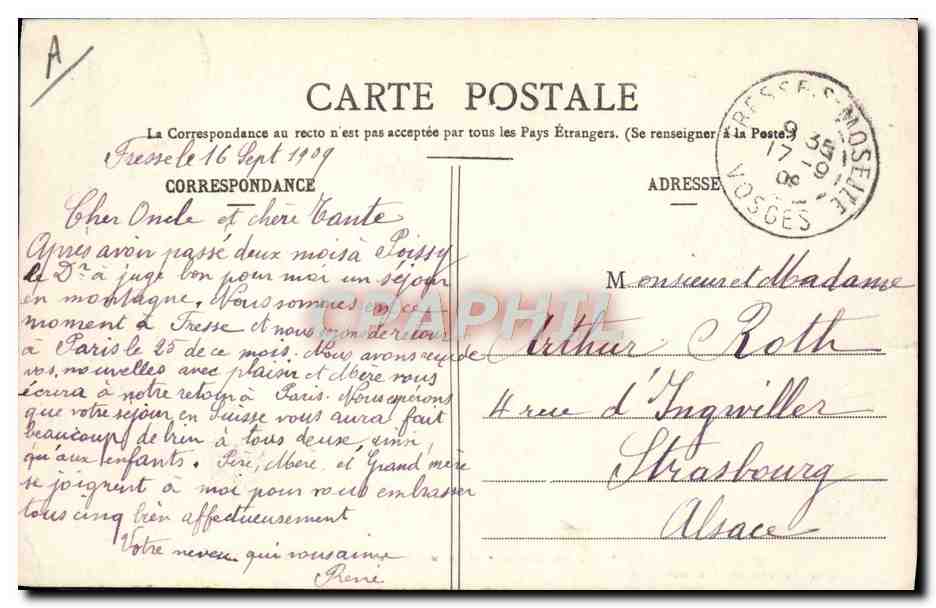 A
CARTE POSTALE
La Correspondance au recto n'est pas acceptée par tous les Pays Étrangers. (Se renseigner à la Poste.)
Fresse le 16 Sept 1909
CORRESPONDANCE
Cher Oncle et chère Tante
Après avoir passé deux mois à Poissy
le Dr à jugé bon pour moi un séjour
en montagne. Nous sommes en ce
moment à Fresse et nous serons de retour
à Paris le 25 de ce mois. Nous avons reçu de
vos nouvelles avec plaisir et Mère vous
écrira à notre retour à Paris. Nous espérons
que votre séjour en Suisse vous aura fait
beaucoup de bien à tous deux, ainsi
qu'aux enfants. Père, Mère et Grand'mère
se joignent à moi pour vous embrasser
tous cinq bien affectueusement
Votre neveu qui vous aime
René
ADRESSE
Monsieur et Madame
Arthur Roth
4 rue d'Ingwiller
Strasbourg
Alsace
FRESSE-S-MOSELLE
9 35
17 - 9
09
VOSGES
DELCAMPHIL